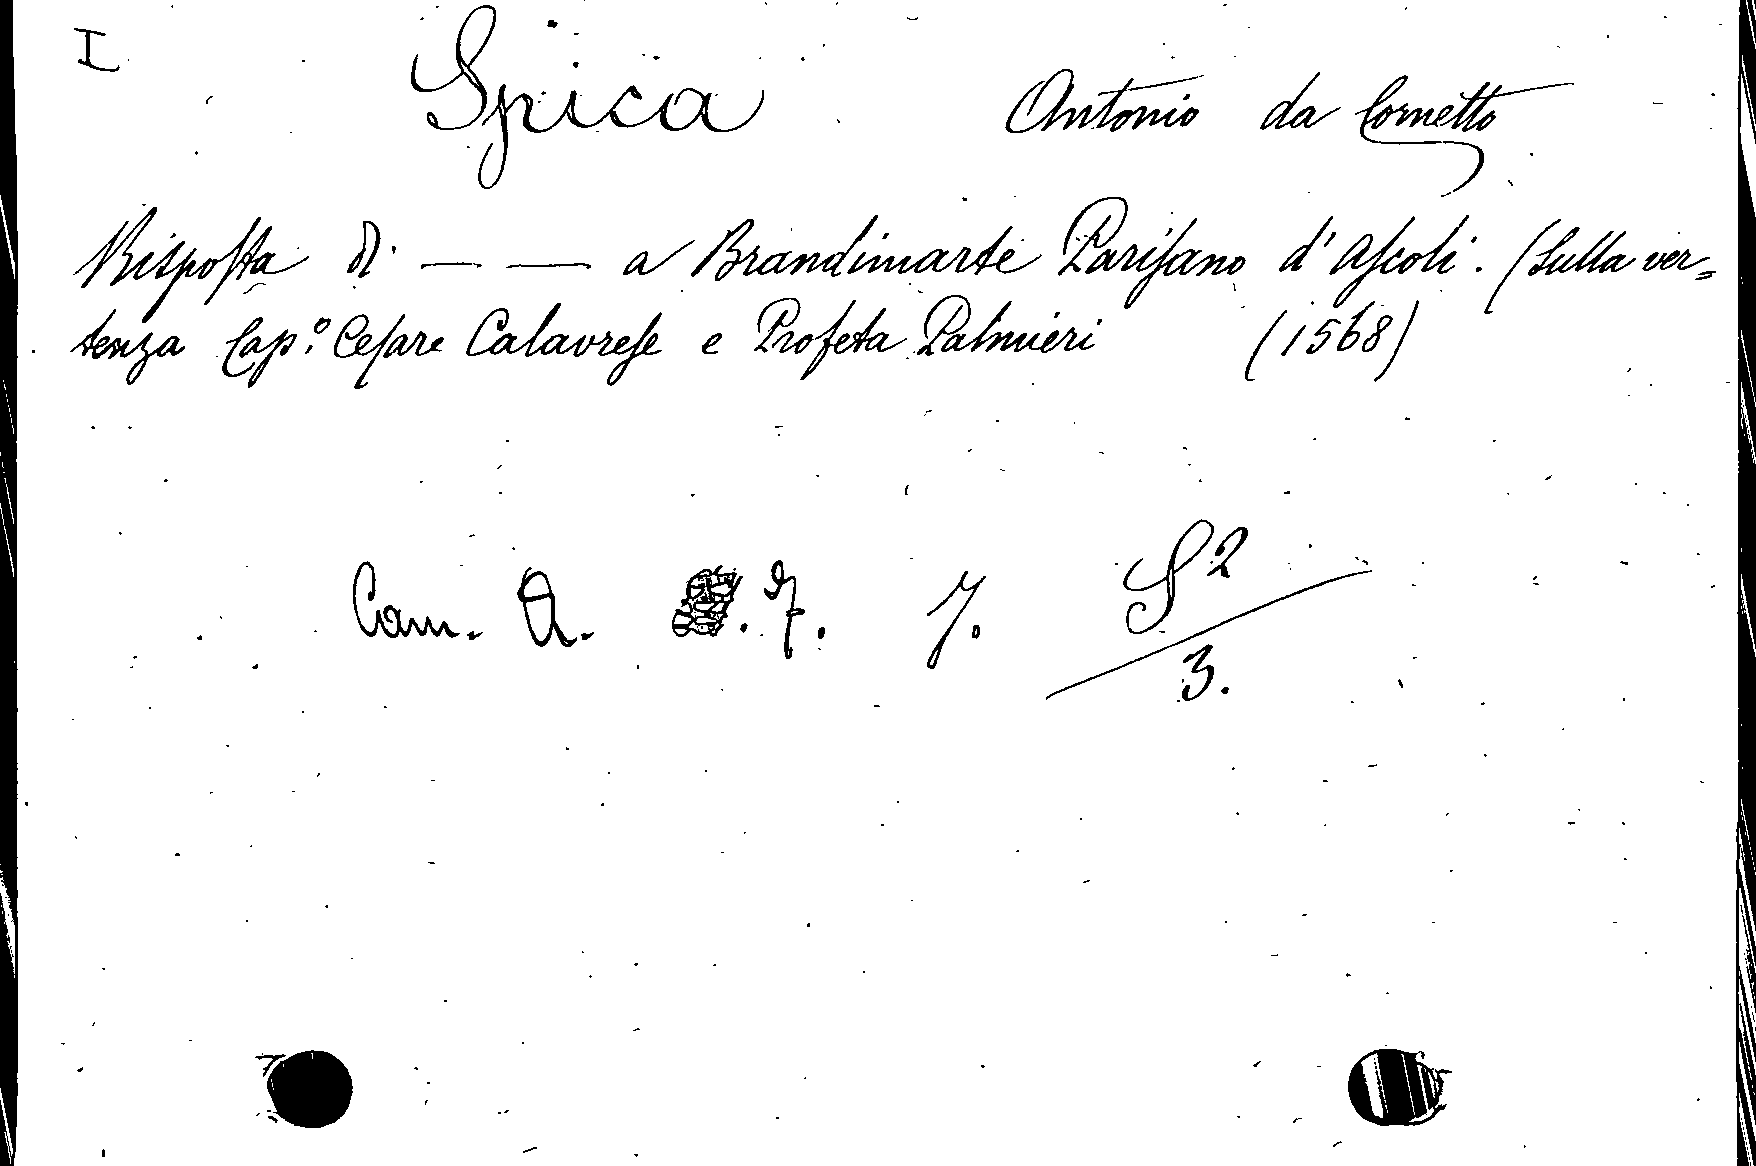 I Spica Antonio da Cornetto
Risposta di — — a Brandimarte Parisano d'Ascoli. (Sulla ver=
tenza Cap.º Cesare Calavrese e Profeta Palmieri (1568)
Cam. A. . 7. 7. S2
3.